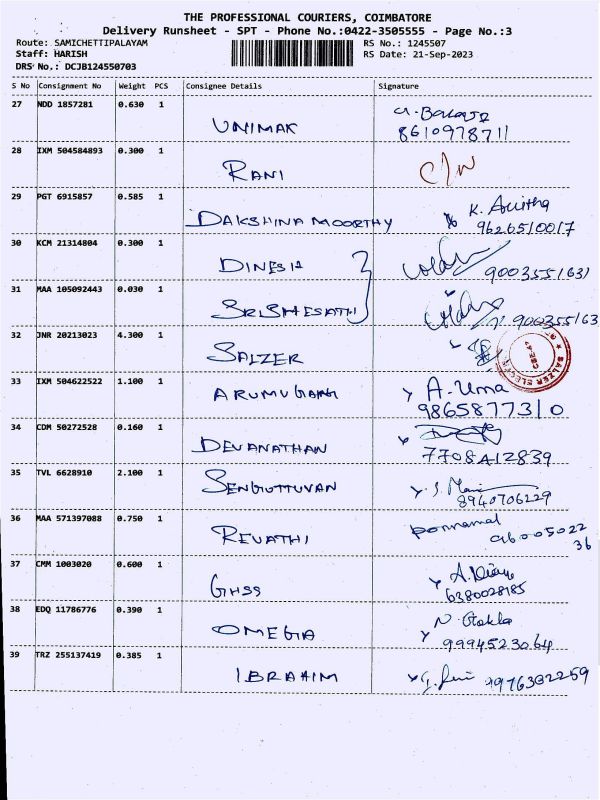 THE PROFESSIONAL COURIERS, COIMBATORE
Delivery Runsheet - SPT - Phone No.:0422-3505555 - Page No.:3
Route: SAMICHETTIPALAYAM RS No.: 1245507
Staff: HARISH RS Date: 21-Sep-2023
DRS No.: DCJB124550703
S No Consignment No Weight PCS Consignee Details Signature
27 NDD 1857281 0.630 1
UNIMAK 8610978711
28 IXM 504584893 0.300 1
RANI C/N
29 PGT 6915857 0.585 1 K. Anitha
DAKSHINA MOORTHY 9626510017
30 KCM 21314804 0.300 1
DINESH 9003555163
31 MAA 105092443 0.030 1
9003555163
32 JNR 20213023 4.300 1
SALZER
33 IXM 504622522 1.100 1 A. Uma
ARUMUGAM 9865877310
34 CDM 50272528 0.160 1
DEVANATHAN 7708412839
35 TVL 6628910 2.100 1
SENGUTTUVAN 8940706229
36 MAA 571397088 0.750 1 ponnamal
REVATHI 96005022
36
37 CMM 1003020 0.600 1
GHSS 6380028185
38 EDQ 11786776 0.390 1 N. Gokla
OMEGA 9994523064
39 TRZ 255137419 0.385 1
IBRAHIM 9976302259